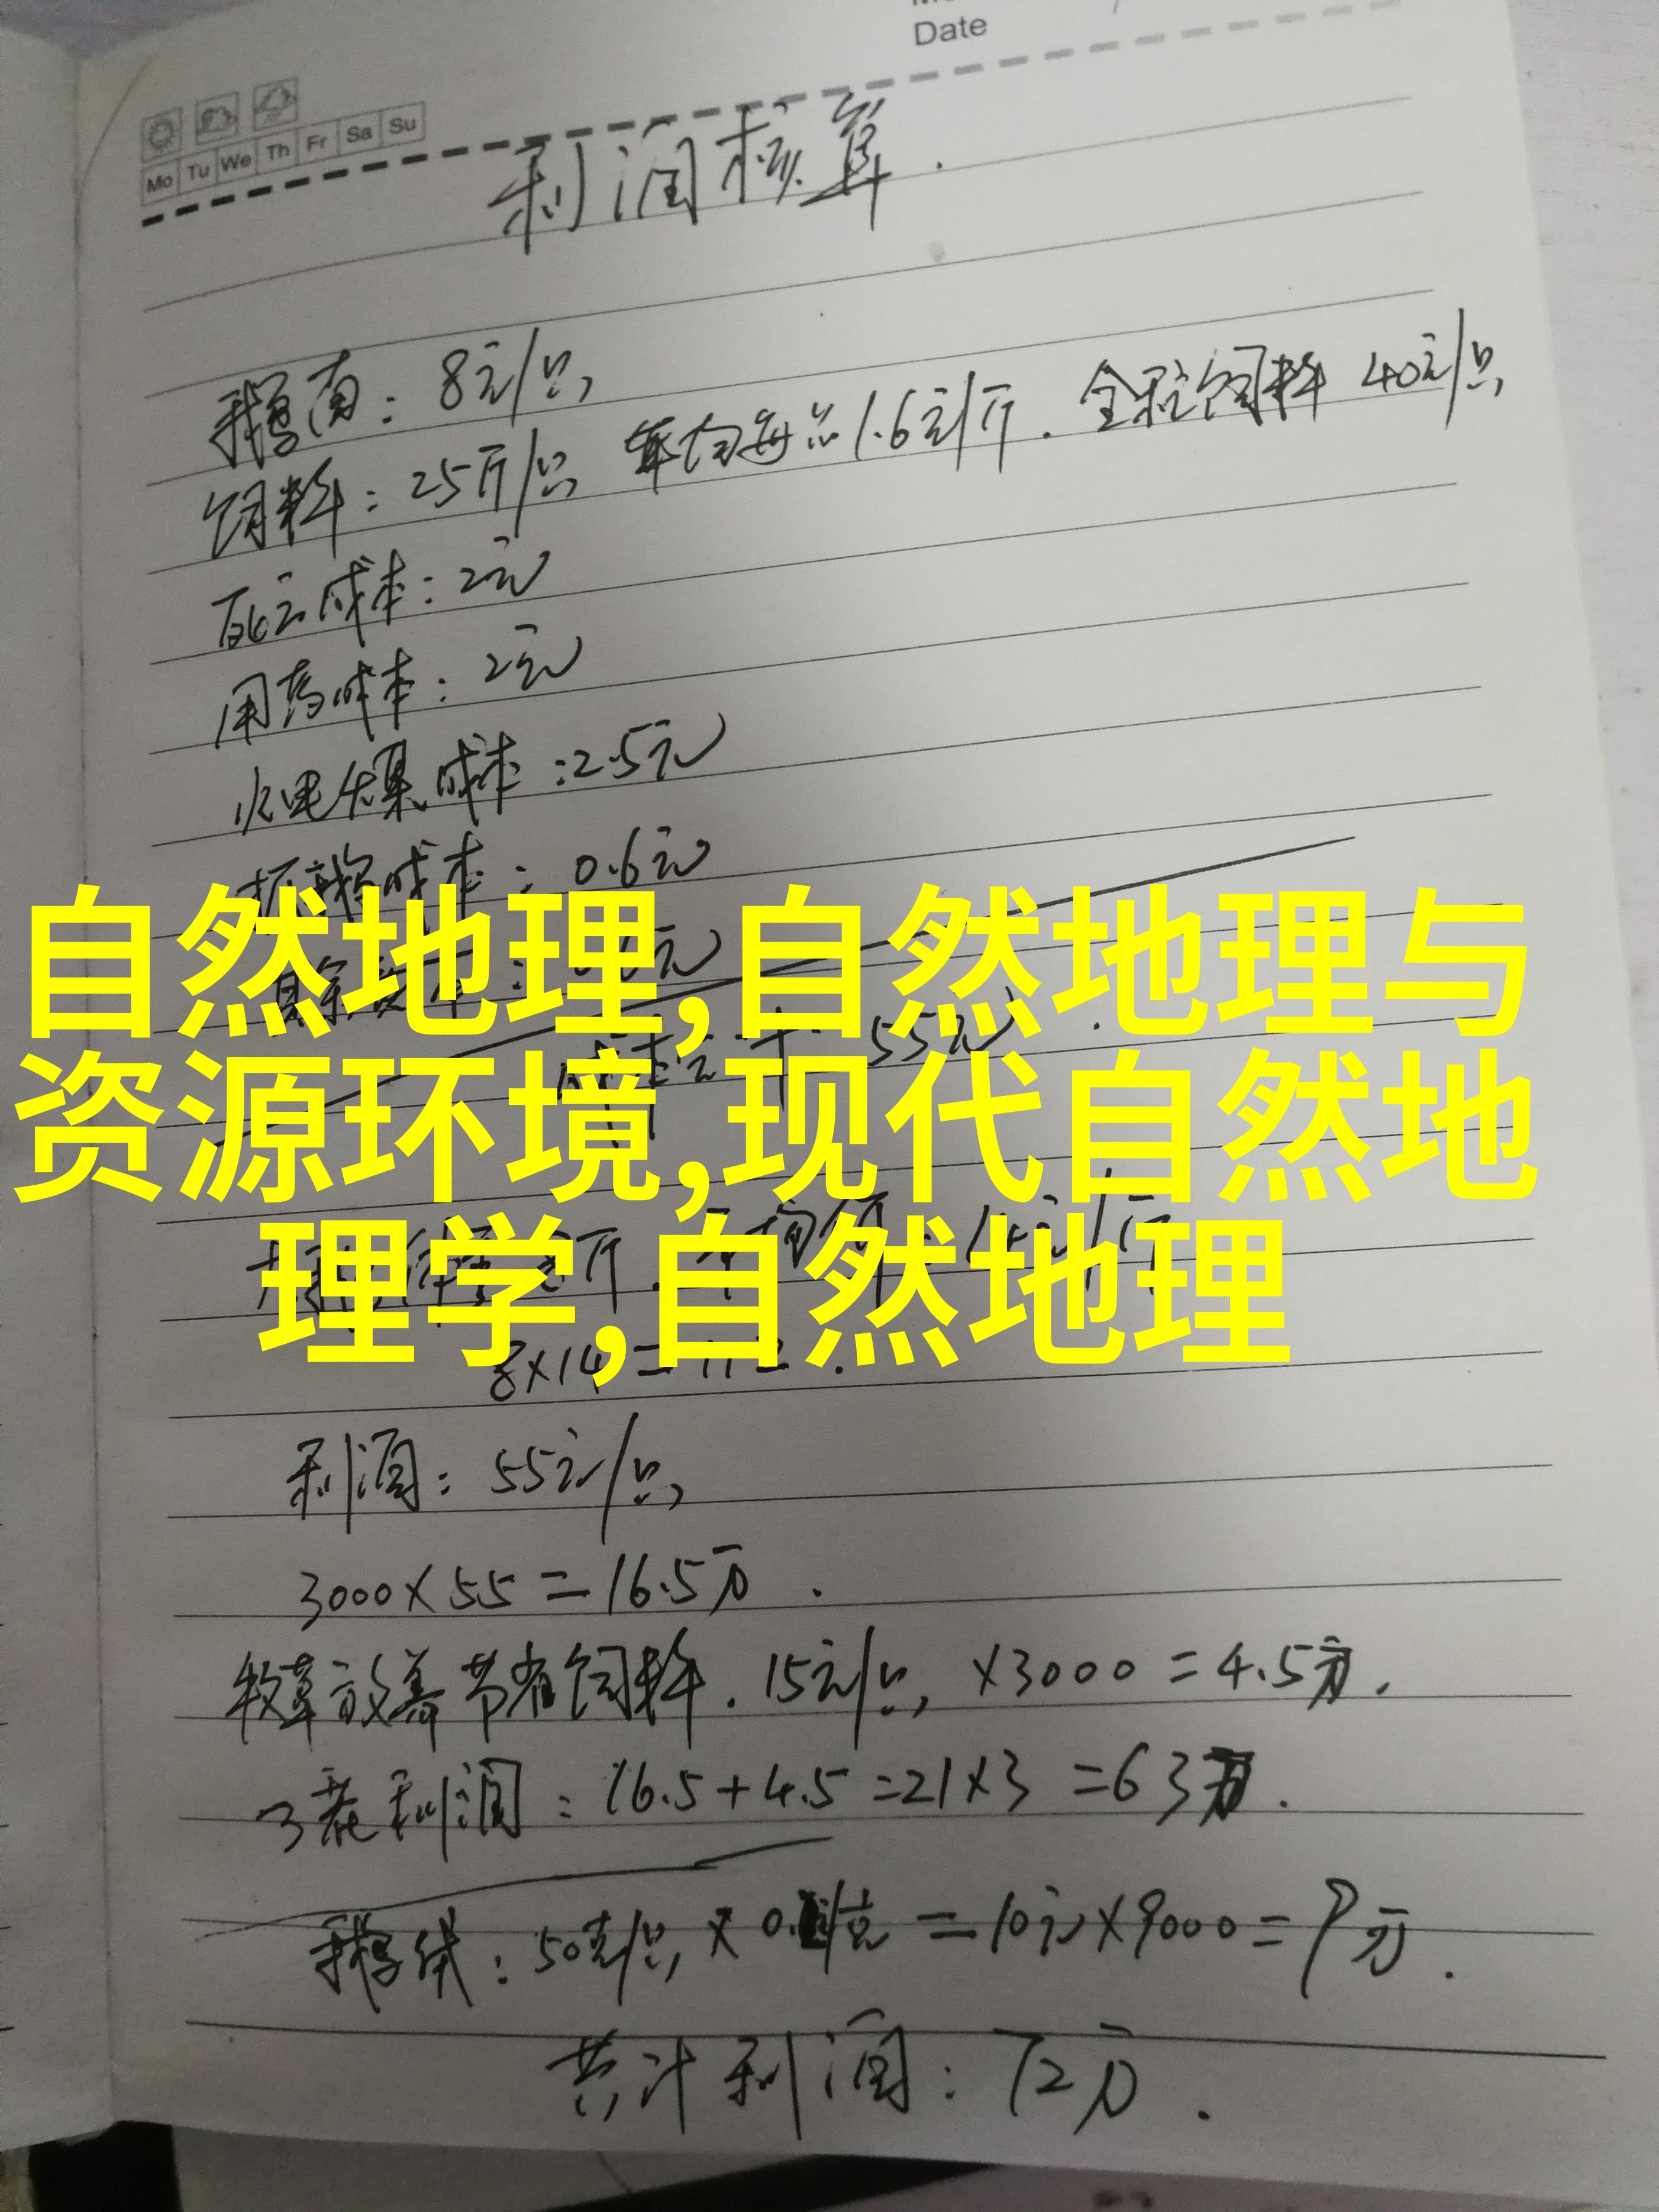 Date
Mo Tu We Th Fr Sa Su
利润核算.
鹅苗: 8元/只,
饲料: 25斤/只, 平均每 1.6元/斤. 全程饲料 40元/只,
死亡成本: 2元
用药成本: 2元
水电煤 成本: 2.5元
成本: 0.6元
自然地理,自然地理与
资源环境,现代自然地
理学,自然地理
55元.
斤. 14元/斤
8×14=112.
利润: 55元/只,
3000×55=16.5万.
牧草放养节省饲料. 15元/只, ×3000=4.5万.
3茬利润: 16.5+4.5=21×3=63万.
鹅绒: 50克/只, × =10元×9000=9万.
共计利润: 72万.